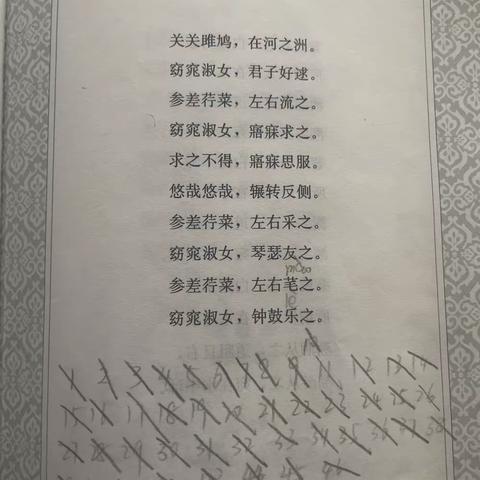 关关雎鸠，在河之洲。
窈窕淑女，君子好逑。
参差荇菜，左右流之。
窈窕淑女，寤寐求之。
求之不得，寤寐思服。
悠哉悠哉，辗转反侧。
参差荇菜，左右采之。
窈窕淑女，琴瑟友之。
参差荇菜，左右芼之。
窈窕淑女，钟鼓乐之。
1 2 3 4 5 6 7 8 9 10 11 12 13 14
15 16 17 18 19 20 21 22 23 24 25 26
27 28 29 30 31 32 33 34 35 36 37 38